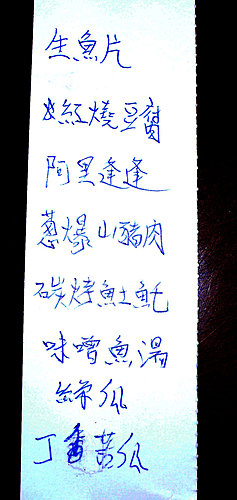 生魚片
紅燒豆腐
阿里逢逢
蔥爆山豬肉
碳烤魠魠
味噌魚湯
絲瓜
丁香苦瓜